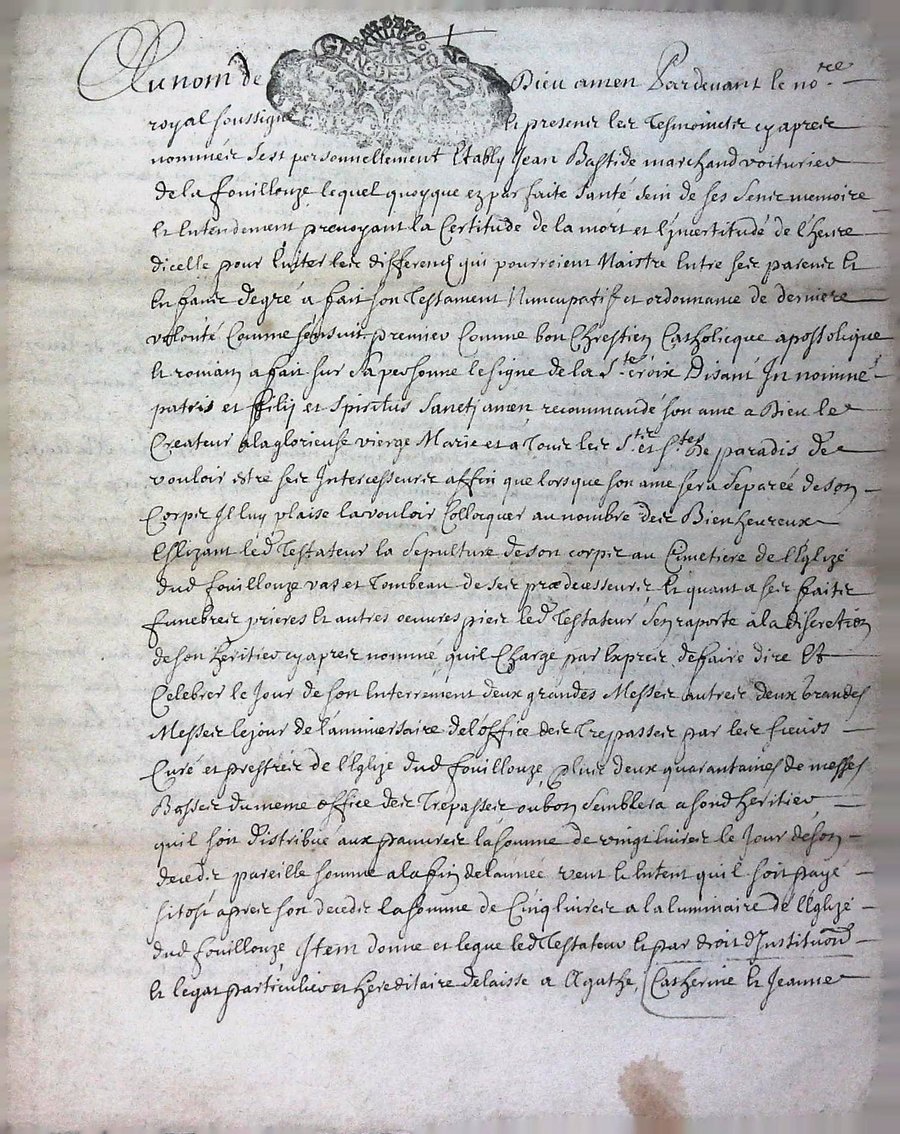 Au nom de Dieu amen Pardevant le no.re
royal soussigné et presens les Tesmoins cy apres
nommés sest personnellement Estably Jean Bastide marchand voiturier
de la fouillouze lequel quoyque ez parfaite santé sein de ses sens memoire
et Entendement prevoyant la Certitude de la mort et l'jncertitude de l'heure
dicelle pour Eviter les differendz qui pourroient Naistre Entre ses parens et
Enfans de gré a fait son Testament Nuncupatif et ordonnance de derniere
volonté Comme sensuit premier Comme bon Chrestien Catholicque apostolique
et romain a fait sur sa personne le signe de la S.te croix Disant In nomine
patris et ffilij et spiritus sanctj amen recommandé son ame a Dieu le
Createur a la glorieuse vierge Marie et a Tous les S.tz et S.tes de paradis de
vouloir estre ses Intercesseurs affin que lorsque son ame sera separée de son
Corps Il luy plaise la vouloir Collocquer au nombre des Bienheureux
Eslizant led Testateur la sepulture de son corps au Cimetiere de l'Eglize
dud fouillouze vas et Tombeau de ses prædecesseurs et quant a ses fraits
funebres prieres et autres oeuvres pies led Testateur sen raporte a la discretion
de son heritier cy apres nommé quil Charge par Exprés de faire dire Et
Celebrer le Jour de son Enterrement deux grandes Messes autres deux Grandes
Messes le jour de l'anniversaire de l'office des Trepasses par les sieurs
Curé et prestres de l'Eglize dud fouillouze, plus deux quarantaines de messes
Basses du meme office des Trepasses ou bon semblera a sond heritier
quil soit distribué aux pauvres la somme de vingt livres le Jour de son
decedz pareille somme a la fin de lannée veut et Entent quil soit payé
sitost apres son decedz la somme de Cinq livres a la luminaire de l'Eglize
dud fouillouze Item donne et legue led Testateur et par droit d'Institution
et legat particulier et hereditaire delaisse a Agathe, Catherine et Jeanne